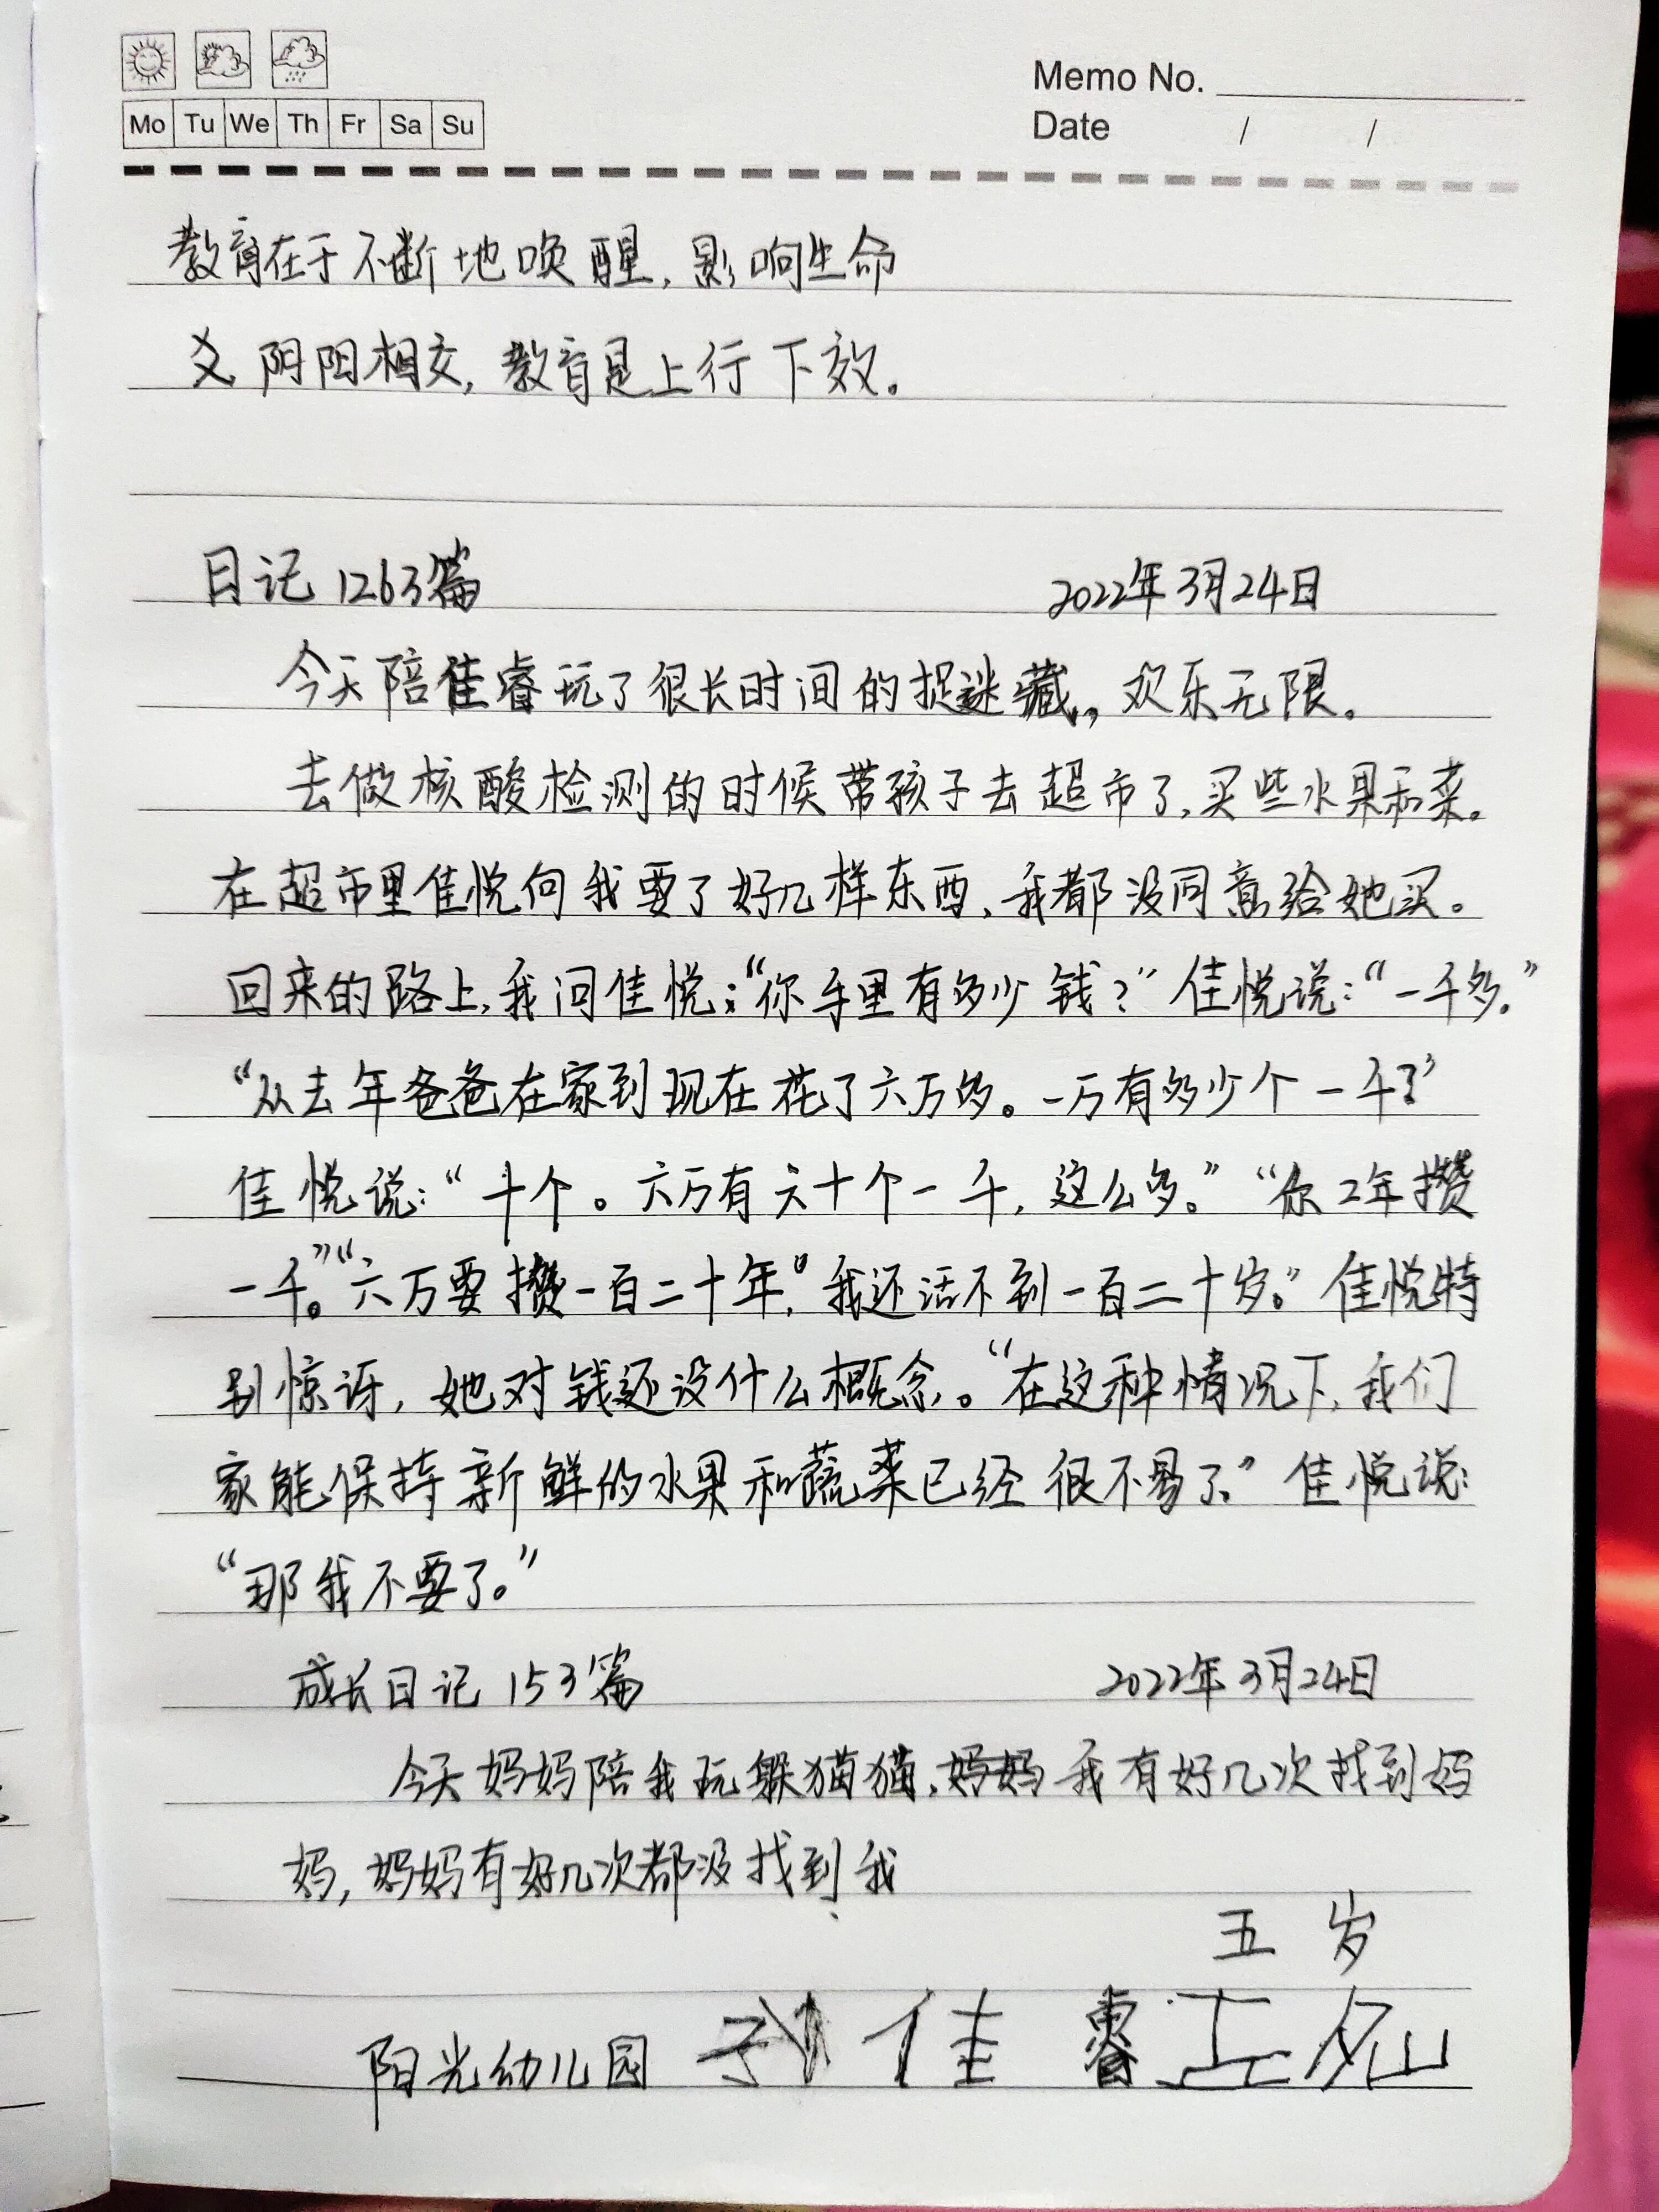 Mo Tu We Th Fr Sa Su
Memo No.
Date / /
教育在于不断地唤醒,影响生命
爻 阴阳相交,教育是上行下效。
日记 1263篇 2022年3月24日
今天陪佳睿玩了很长时间的捉迷藏,欢乐无限。
去做核酸检测的时候带孩子去超市了,买些水果和菜。
在超市里佳悦向我要了好几样东西,我都没同意给她买。
回来的路上,我问佳悦:“你手里有多少钱?”佳悦说:“一千多。”
“从去年爸爸在家到现在花了六万多。一万有多少个一千?”
佳悦说:“十个。六万有六十个一千,这么多。”“你2年攒
一千。”“六万要攒一百二十年,我还活不到一百二十岁。”佳悦特
别惊讶,她对钱还没什么概念。“在这种情况下,我们
家能保持新鲜的水果和蔬菜已经很不易了。”佳悦说:
“那我不要了。”
成长日记 153篇 2022年3月24日
今天妈妈陪我玩躲猫猫,我有好几次找到妈
妈,妈妈有好几次都没找到我
五岁
阳光幼儿园 佳睿五岁